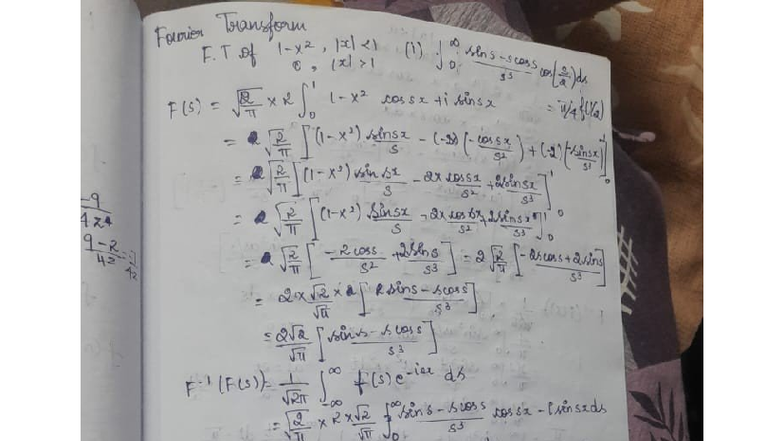 Fourier Transform
F.T of 1-x², |x|<1 (1) ∫₀^∞ (sins-scoss)/s³ cos(s/2)ds
0, |x|>1
F(s) = √(2/π) × 2 ∫₀¹ 1-x² cossx + i sinsx = π/4 f(1/2)
= 2 √(2/π) [(1-x²) sinsx/s - (-2x)(-cossx/s²) + (-2)(-sinsx/s³)]₀¹
= 2 √(2/π) [(1-x²) sinsx/s - 2xcossx/s² + 2sinsx/s³]₀¹
= 2 √(2/π) [(1-x²) sinsx/s - 2xcossx/s² + 2sinsx/s³]₀¹
= 2 √(2/π) [-2coss/s² + 2sins/s³] = 2 √(2/π) [(-2scoss+2sins)/s³]
= 2×√2/√π × 2 [(sins-scoss)/s³]
= 2√2/√π [(sins-scoss)/s³]
F⁻¹(F(s)) = 1/√2π ∫₋∞^∞ f(s)e^-isx ds
= √(2/π) × 2×√2/√π ∫₀^∞ (sins-scoss)/s³ cossx - isinsxds
-9
42
9-2
42